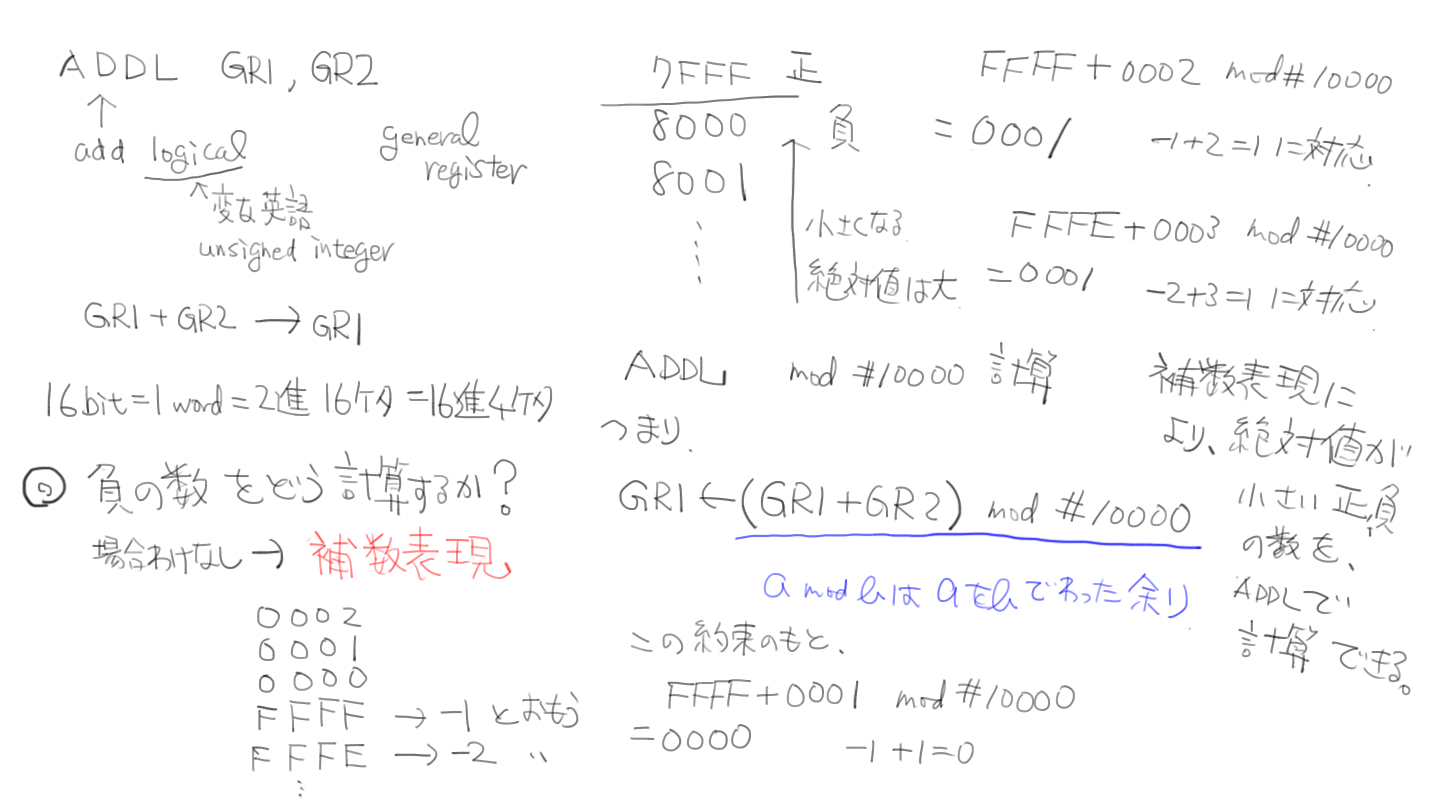 ADDL GR1, GR2
↑
add logical
general register
↖変な英語
unsigned integer
GR1+GR2 → GR1
16bit=1word=2進16ケタ=16進4ケタ
負の数をどう計算するか?
場合わけなし→ 補数表現
0002
0001
0000
FFFF → -1 とおもう
FFFE → -2 〃
⋮
7FFF 正
8000 負
8001
⋮
小さくなる
絶対値は大
FFFF+0002 mod #10000
=0001 -1+2=1に対応
FFFE+0003 mod #10000
=0001 -2+3=1に対応
ADDL mod #10000 計算
つまり.
GR1←(GR1+GR2) mod #10000
a mod bは aをbでわった余り
この約束のもと、
FFFF+0001 mod #10000
=0000 -1+1=0
補数表現に
より、絶対値が
小さい正,負
の数を、
ADDLで
計算できる。